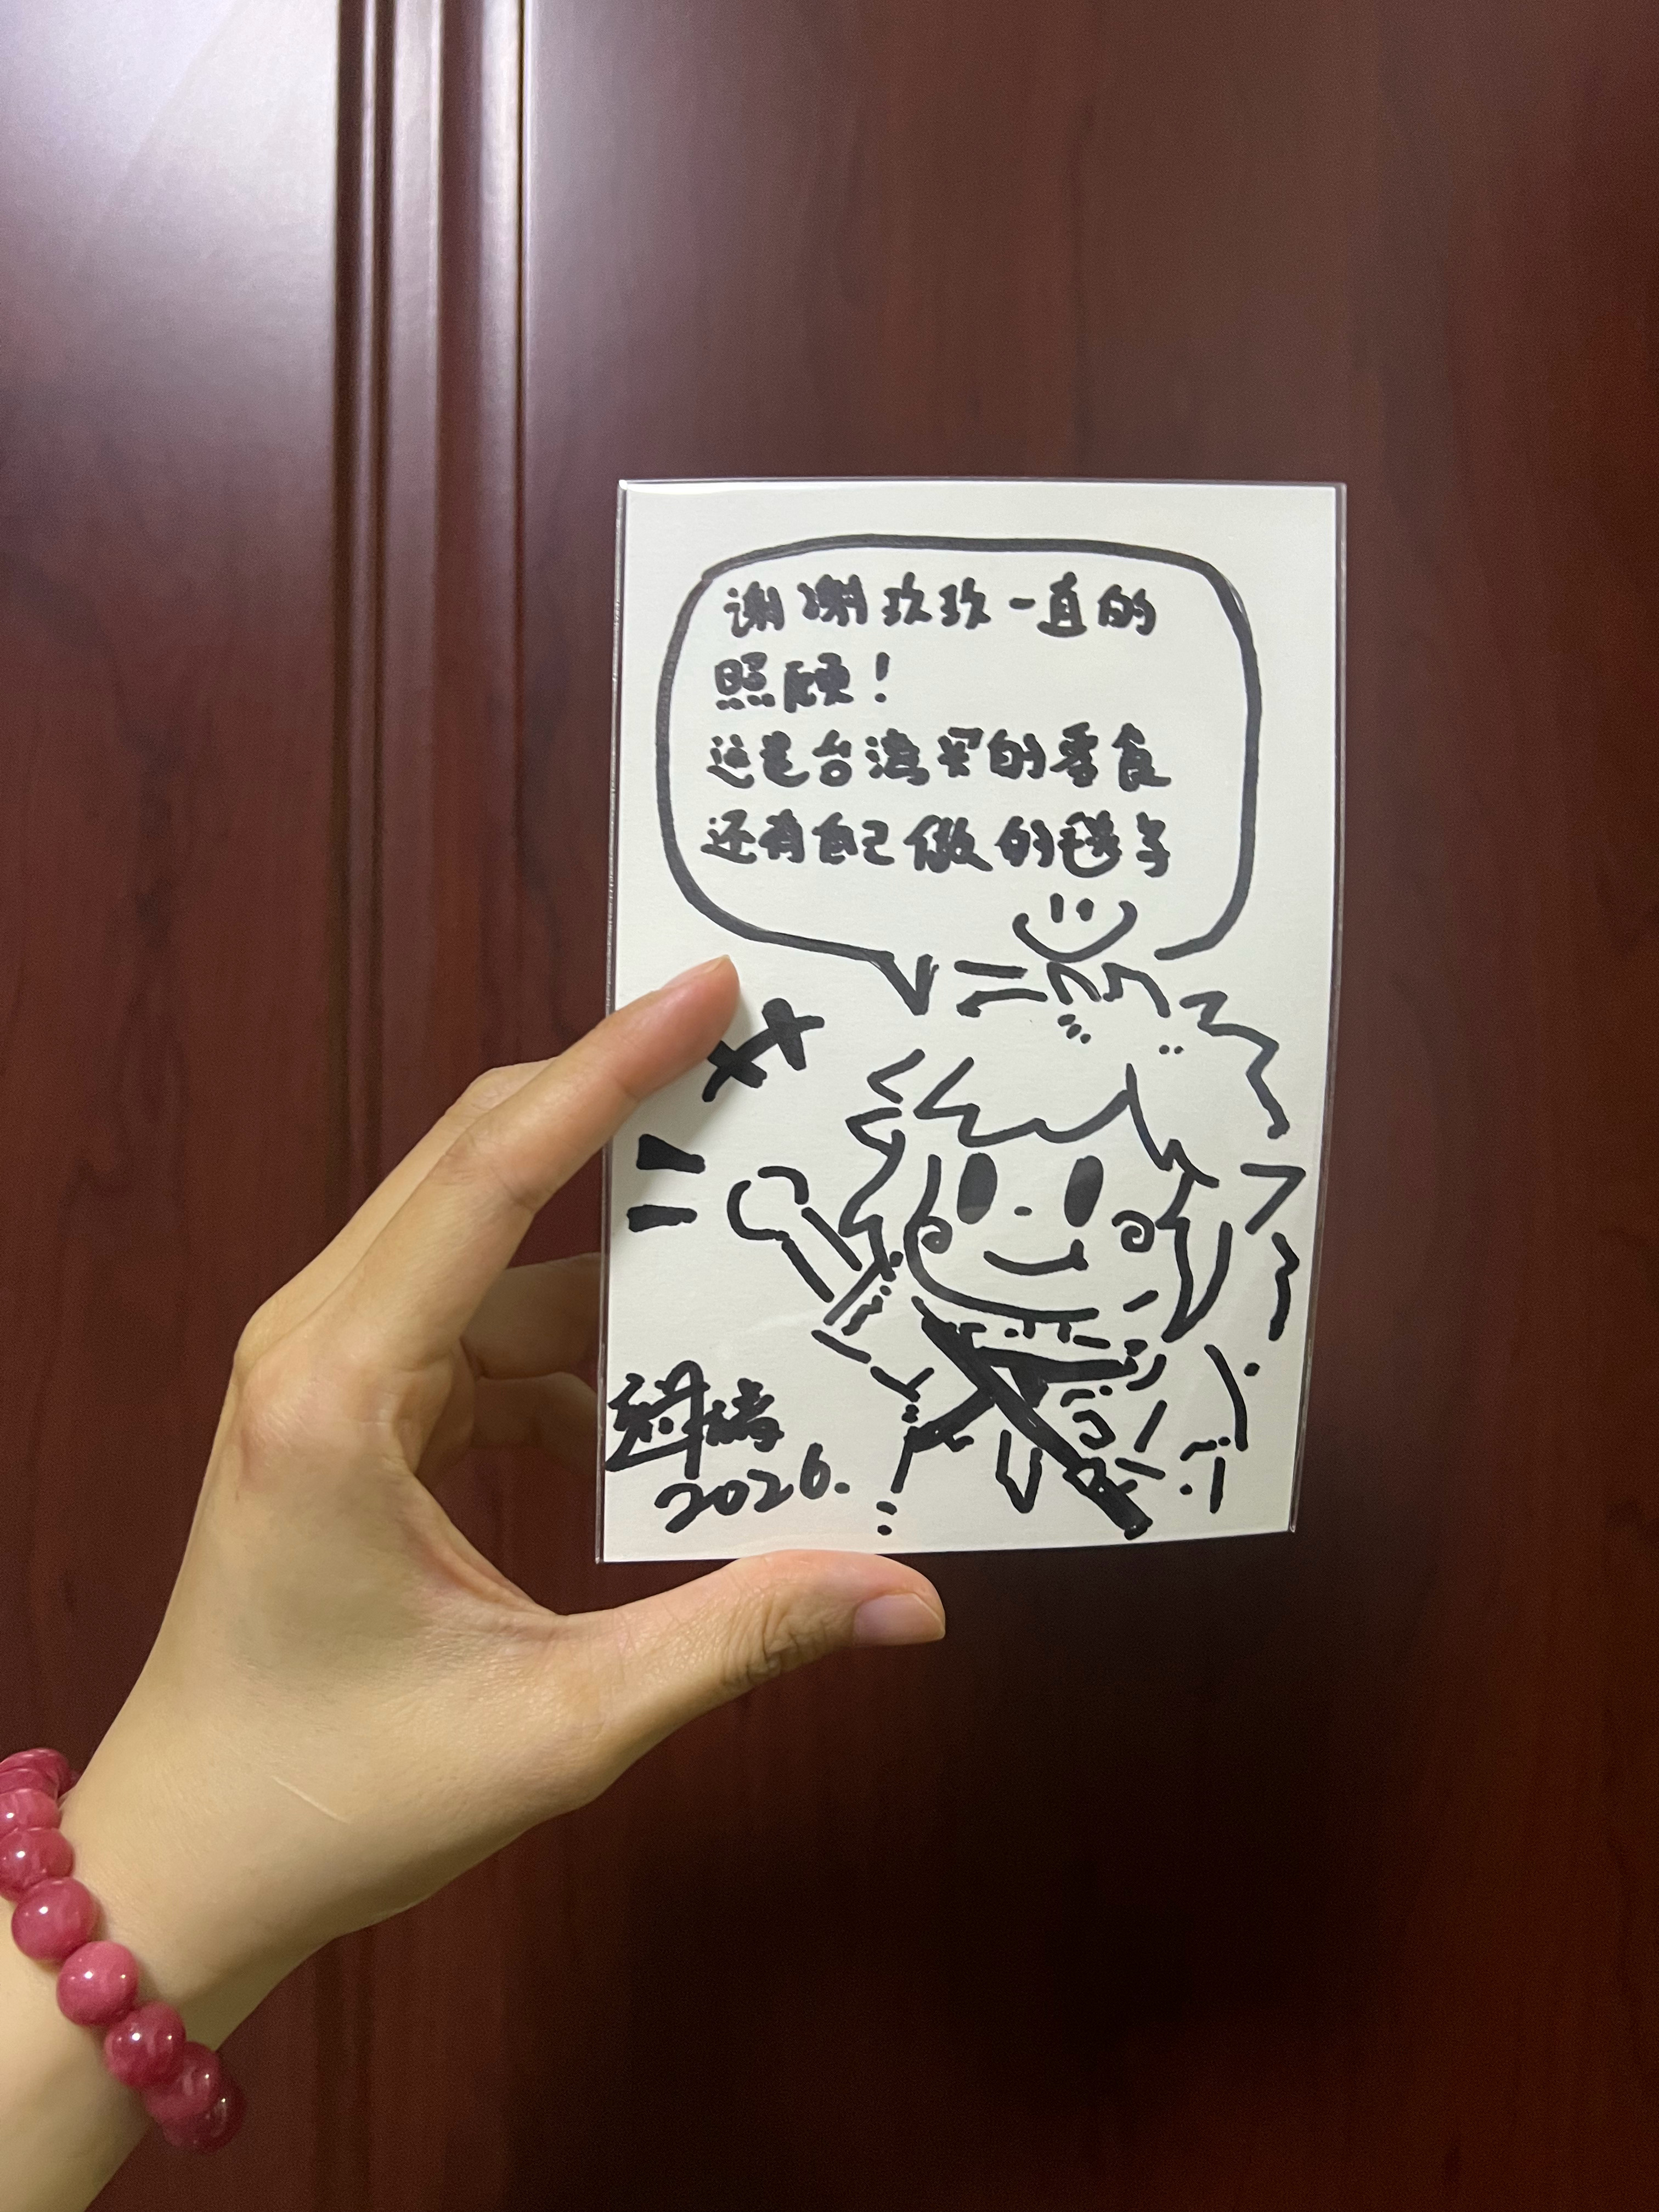 谢谢玖玖一直的
照顾!
这是台湾买的零食
还有自己做的毯子
2026.